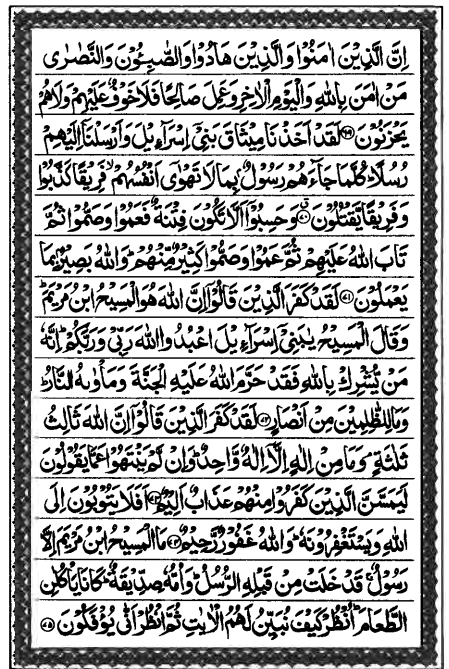 اِنَّ الَّذِيْنَ اٰمَنُوْا وَالَّذِيْنَ هَادُوْا وَالصّٰبِـُٔوْنَ وَالنَّصٰرٰى
مَنْ اٰمَنَ بِاللّٰهِ وَالْيَوْمِ الْاٰخِرِ وَعَمِلَ صَالِحًا فَلَا خَوْفٌ عَلَيْهِمْ وَلَا هُمْ
يَحْزَنُوْنَ ﴿۶۹﴾ لَقَدْ اَخَذْنَا مِيْثَاقَ بَنِيْٓ اِسْرَآءِيْلَ وَاَرْسَلْنَآ اِلَيْهِمْ
رُسُلًا ؕ كُلَّمَا جَآءَهُمْ رَسُوْلٌۢ بِمَا لَا تَهْوٰٓى اَنْفُسُهُمْ ۙ فَرِيْقًا كَذَّبُوْا
وَفَرِيْقًا يَّقْتُلُوْنَ ﴿۷۰﴾ وَحَسِبُوْٓا اَلَّا تَكُوْنَ فِتْنَةٌ فَعَمُوْا وَصَمُّوْا ثُمَّ
تَابَ اللّٰهُ عَلَيْهِمْ ثُمَّ عَمُوْا وَصَمُّوْا كَثِيْرٌ مِّنْهُمْ ؕ وَاللّٰهُ بَصِيْرٌۢ بِمَا
يَعْمَلُوْنَ ﴿۷۱﴾ لَقَدْ كَفَرَ الَّذِيْنَ قَالُوْٓا اِنَّ اللّٰهَ هُوَ الْمَسِيْحُ ابْنُ مَرْيَمَ ؕ
وَقَالَ الْمَسِيْحُ يٰبَنِيْٓ اِسْرَآءِيْلَ اعْبُدُوا اللّٰهَ رَبِّيْ وَرَبَّكُمْ ؕ اِنَّهٗ
مَنْ يُّشْرِكْ بِاللّٰهِ فَقَدْ حَرَّمَ اللّٰهُ عَلَيْهِ الْجَنَّةَ وَمَاْوٰىهُ النَّارُ ؕ
وَمَا لِلظّٰلِمِيْنَ مِنْ اَنْصَارٍ ﴿۷۲﴾ لَقَدْ كَفَرَ الَّذِيْنَ قَالُوْٓا اِنَّ اللّٰهَ ثَالِثُ
ثَلٰثَةٍ ۘ وَمَا مِنْ اِلٰهٍ اِلَّآ اِلٰهٌ وَّاحِدٌ ؕ وَاِنْ لَّمْ يَنْتَهُوْا عَمَّا يَقُوْلُوْنَ
لَيَمَسَّنَّ الَّذِيْنَ كَفَرُوْا مِنْهُمْ عَذَابٌ اَلِيْمٌ ﴿۷۳﴾ اَفَلَا يَتُوْبُوْنَ اِلَى
اللّٰهِ وَيَسْتَغْفِرُوْنَهٗ ؕ وَاللّٰهُ غَفُوْرٌ رَّحِيْمٌ ﴿۷۴﴾ مَا الْمَسِيْحُ ابْنُ مَرْيَمَ اِلَّا
رَسُوْلٌ ۚ قَدْ خَلَتْ مِنْ قَبْلِهِ الرُّسُلُ ؕ وَاُمُّهٗ صِدِّيْقَةٌ ؕ كَانَا يَاْكُلٰنِ
الطَّعَامَ ؕ اُنْظُرْ كَيْفَ نُبَيِّنُ لَهُمُ الْاٰيٰتِ ثُمَّ انْظُرْ اَنّٰى يُؤْفَكُوْنَ ﴿۷۵﴾